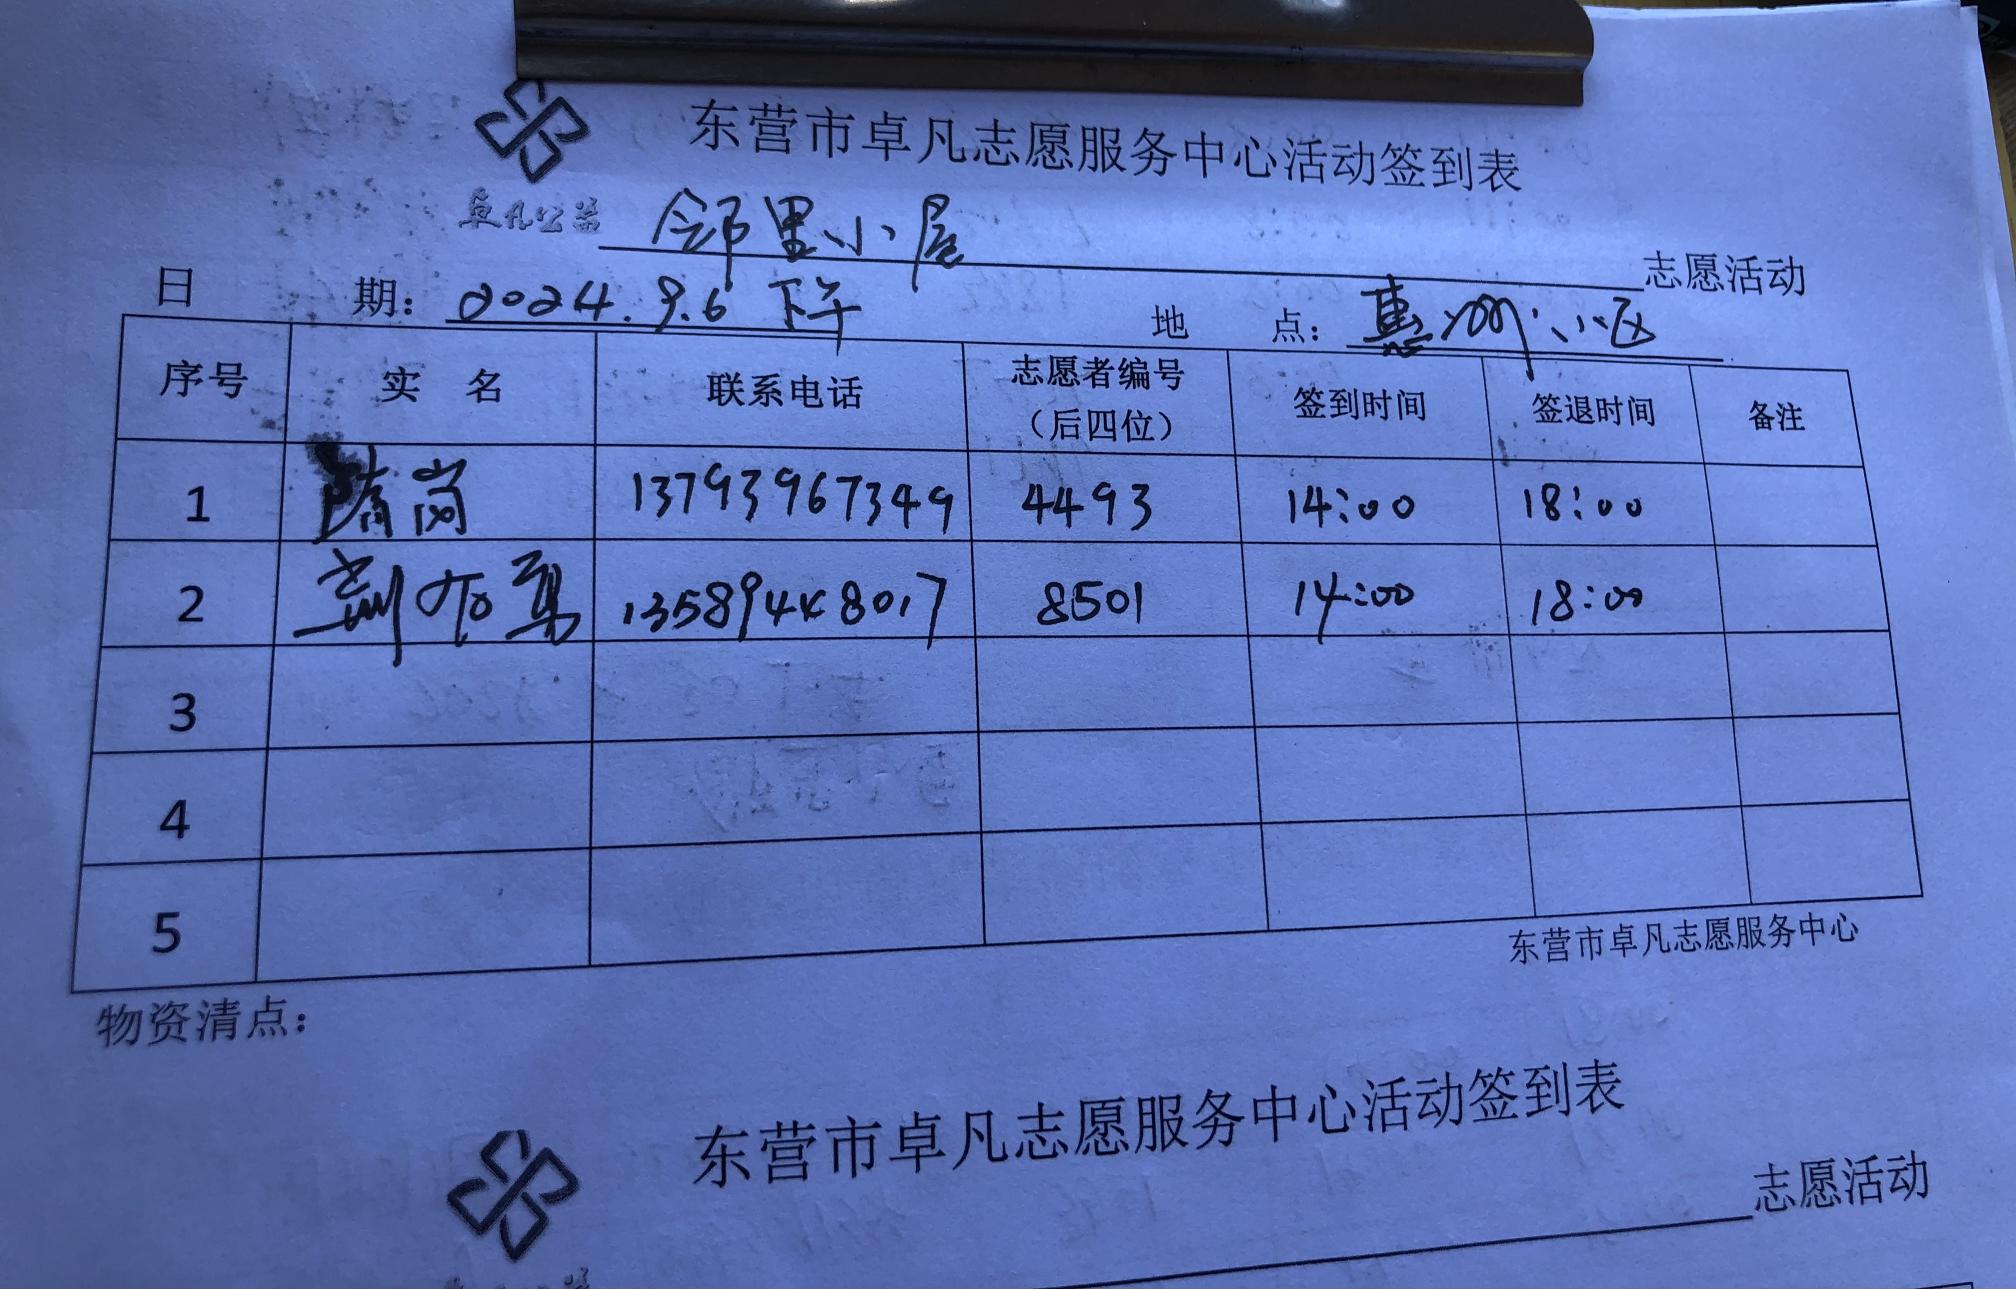 东营市卓凡志愿服务中心活动签到表
卓凡公益 邻里小屋 志愿活动
日 期: 2024.9.6 下午 地 点: 惠州小区
序号 实 名 联系电话 志愿者编号（后四位） 签到时间 签退时间 备注
1 隋岗 13793967349 4493 14:00 18:00
2 13589448017 8501 14:00 18:00
3
4
5
东营市卓凡志愿服务中心
物资清点:
东营市卓凡志愿服务中心活动签到表
志愿活动